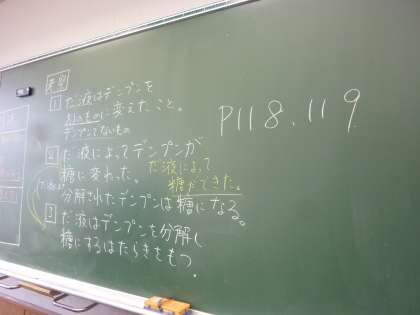 考察
1 だ液はデンプンを
別のものに変えたこと。
デンプンでないもの
2 だ液によってデンプンが
糖に変わった。
だ液によって
糖ができた。
分解されたデンプンは糖になる。
3 だ液はデンプンを分解し
糖にするはたらきをもつ.
P118.119